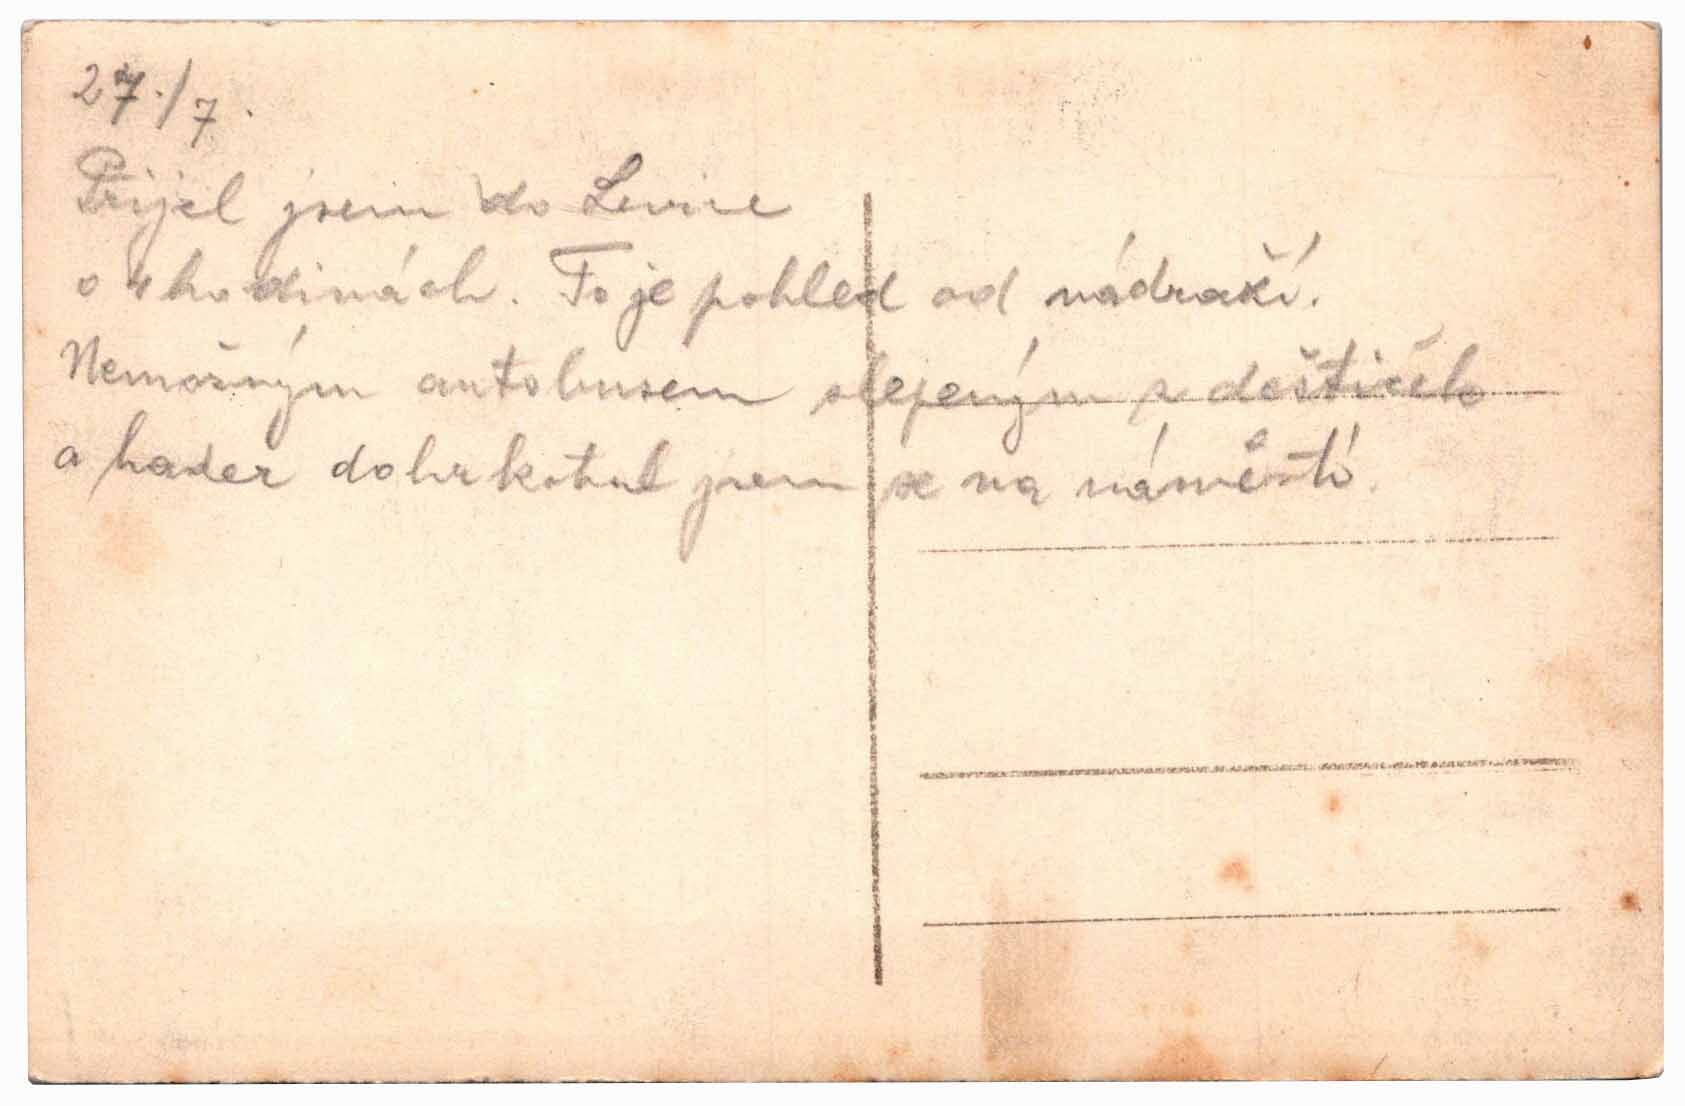 27./7.
Přijel jsem do Levic
o 4 hodinách. To je pohled od nádraží.
Nemožným autobusem slepeným z deštiček
a hader dohrkotal jsem se na náměstí.